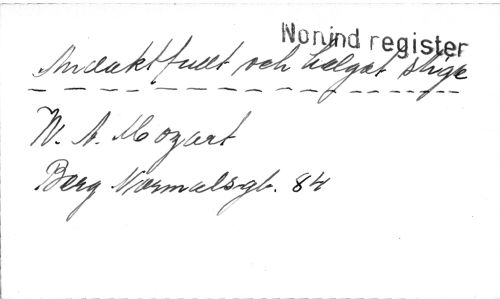 Nonind register
Andaktfullt och helgat stige
W. A. Mozart
Berg Normalsgb. 84